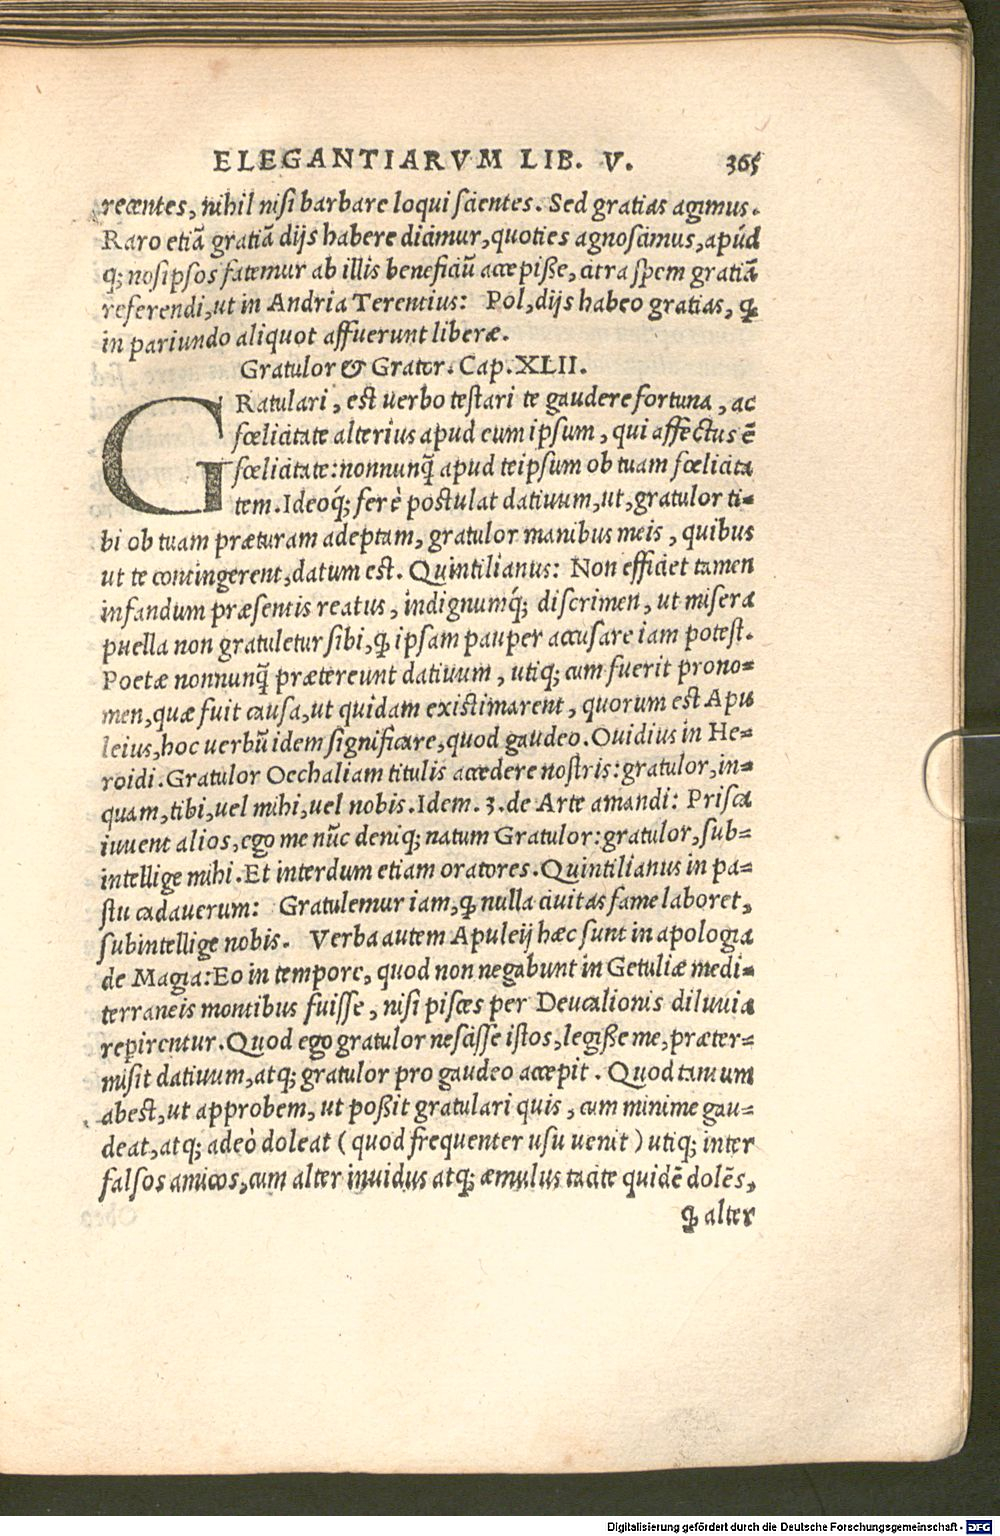 ELEGANTIARVM LIB. V. 365
recentes, nihil nisi barbare loqui scientes. Sed gratias agimus.
Raro etiã gratiã dijs habere dicimur, quoties agnoscimus, apúd
q; nosipsos fatemur ab illis beneficiũ accepiße, citra spem gratiã
referendi, ut in Andria Terentius: Pol, dijs habeo gratias, ꝙ
in pariundo aliquot affuerunt liberæ.
Gratulor & Grator. Cap. XLII.
GRatulari, est uerbo testari te gaudere fortuna, ac
fœlicitate alterius apud eum ipsum, qui affectus ẽ
fœlicitate: nonnunq̃ apud teipsum ob tuam fœlicita
tem. Ideoq́; ferè postulat datiuum, ut, gratulor ti-
bi ob tuam præturam adeptam, gratulor manibus meis, quibus
ut te contingerent, datum est. Quintilianus: Non efficiet tamen
infandum præsentis reatus, indignumq́; discrimen, ut misera
puella non gratuletur sibi, ꝙ ipsam pauper accusare iam potest.
Poetæ nonnunq̃ prætereunt datiuum, utiq; cum fuerit prono-
men, quæ fuit causa, ut quidam existimarent, quorum est Apu
leius, hoc uerbũ idem significare, quod gaudeo. Ouidius in He-
roidi. Gratulor Oechaliam titulis accedere nostris: gratulor, in-
quam, tibi, uel mihi, uel nobis. Idem. 3. de Arte amandi: Prisca
iuuent alios, ego me nũc deniq; natum Gratulor: gratulor, sub-
intellige mihi. Et interdum etiam oratores. Quintilianus in pa-
stu cadauerum: Gratulemur iam, ꝙ nulla ciuitas fame laboret,
subintellige nobis. Verba autem Apuleij hæc sunt in apologia
de Magia: Eo in tempore, quod non negabunt in Getuliæ medi-
terraneis montibus fuisse, nisi pisces per Deucalionis diluuia
repirentur. Quod ego gratulor nescisse istos, legiße me, præter-
misit datiuum, atq; gratulor pro gaudeo accepit. Quod tantum
abest, ut approbem, ut poßit gratulari quis, cum minime gau-
deat, atq; adeò doleat (quod frequenter usu uenit) utiq; inter
falsos amicos, cum alter inuidus atq; æmulus tacite quidẽ dolẽs,
ꝙ alter
Digitalisierung gefördert durch die Deutsche Forschungsgemeinschaft - DFG